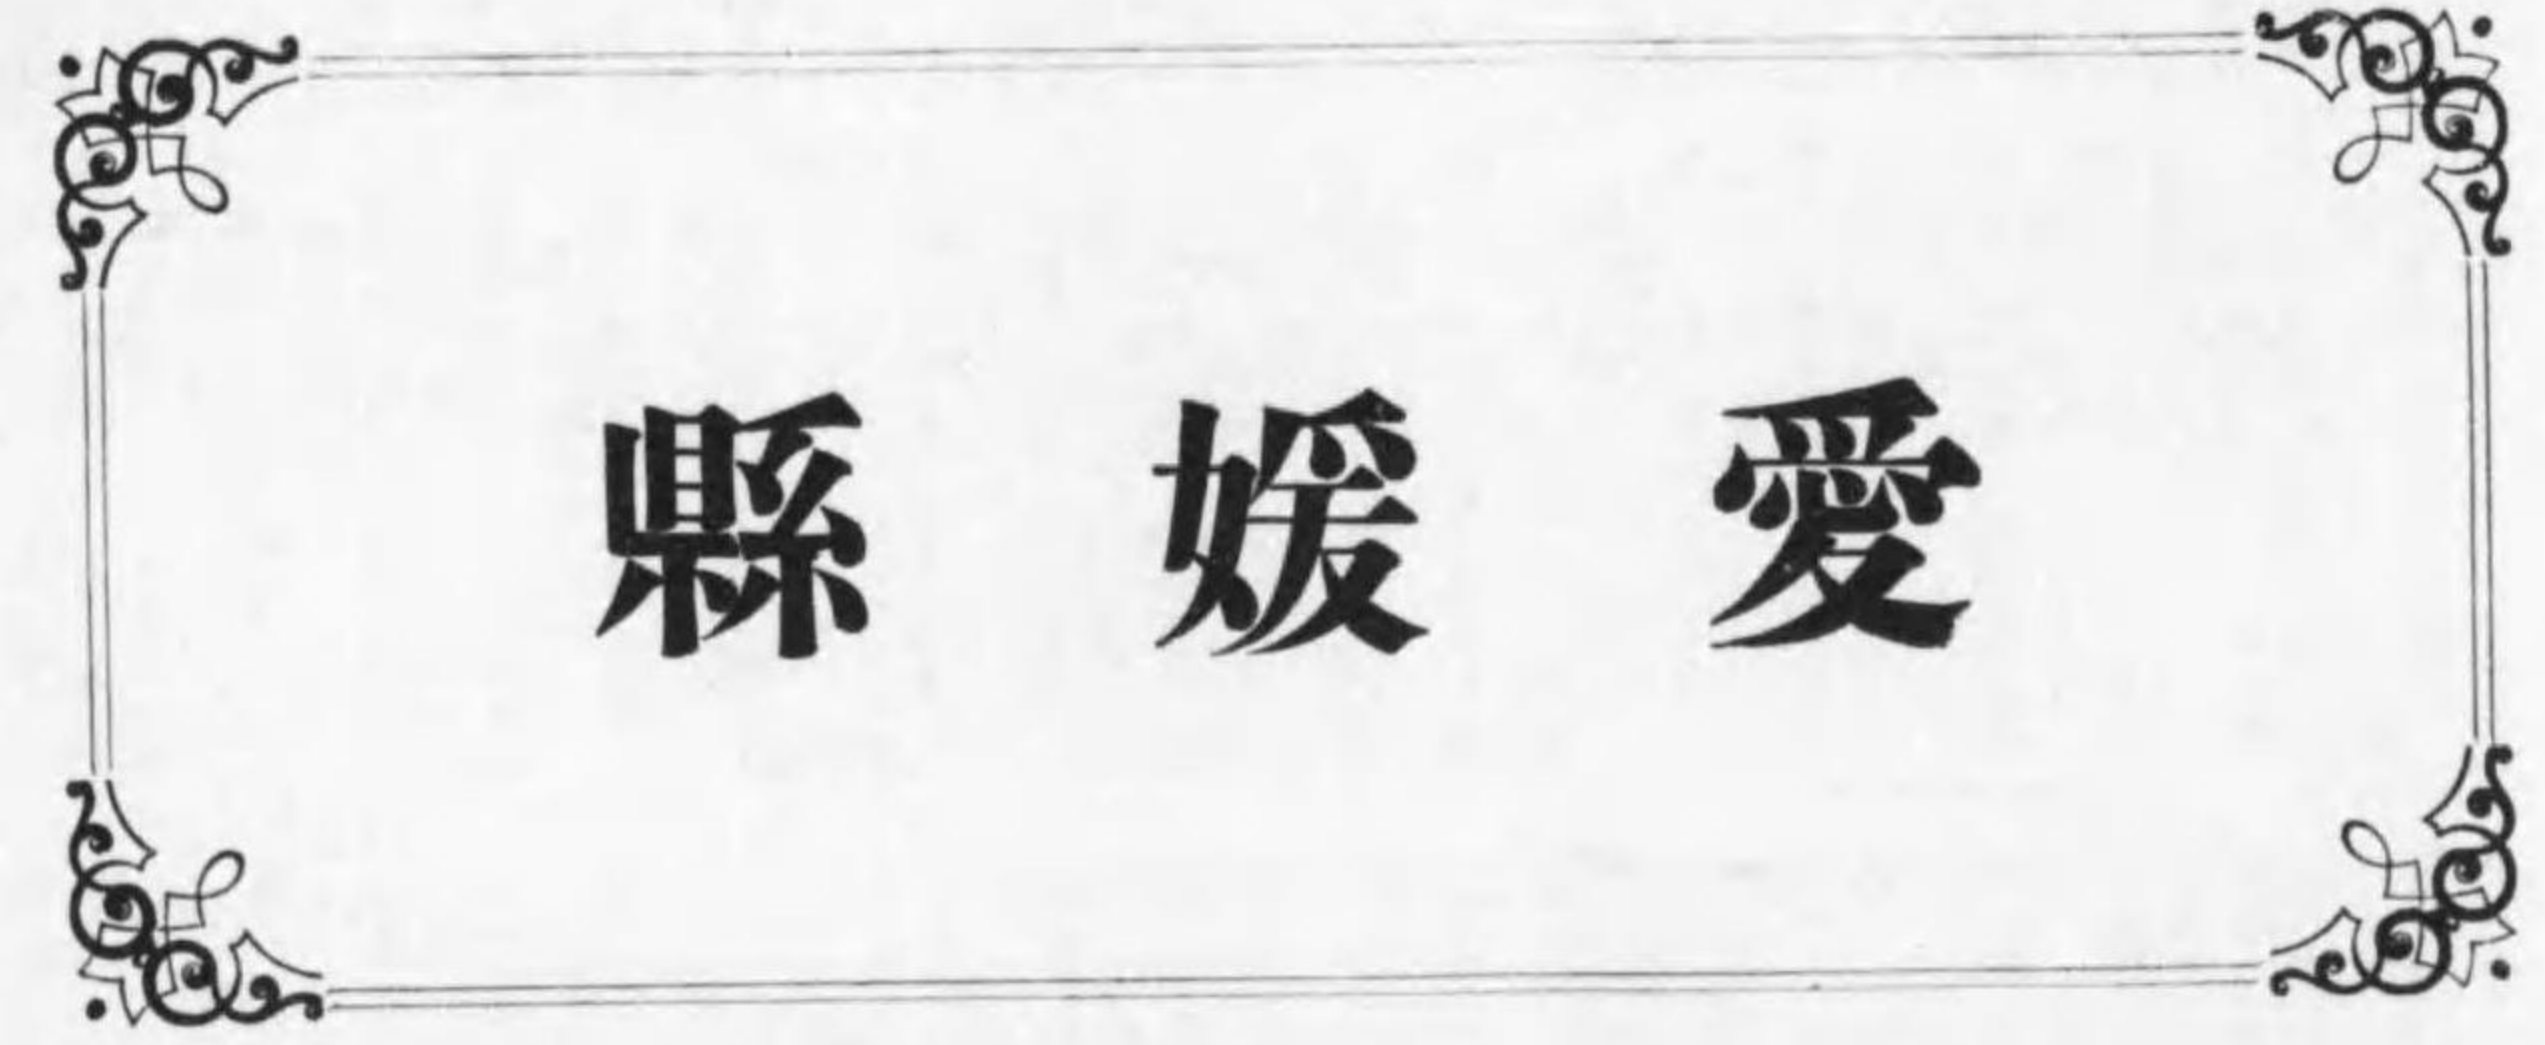 愛媛縣